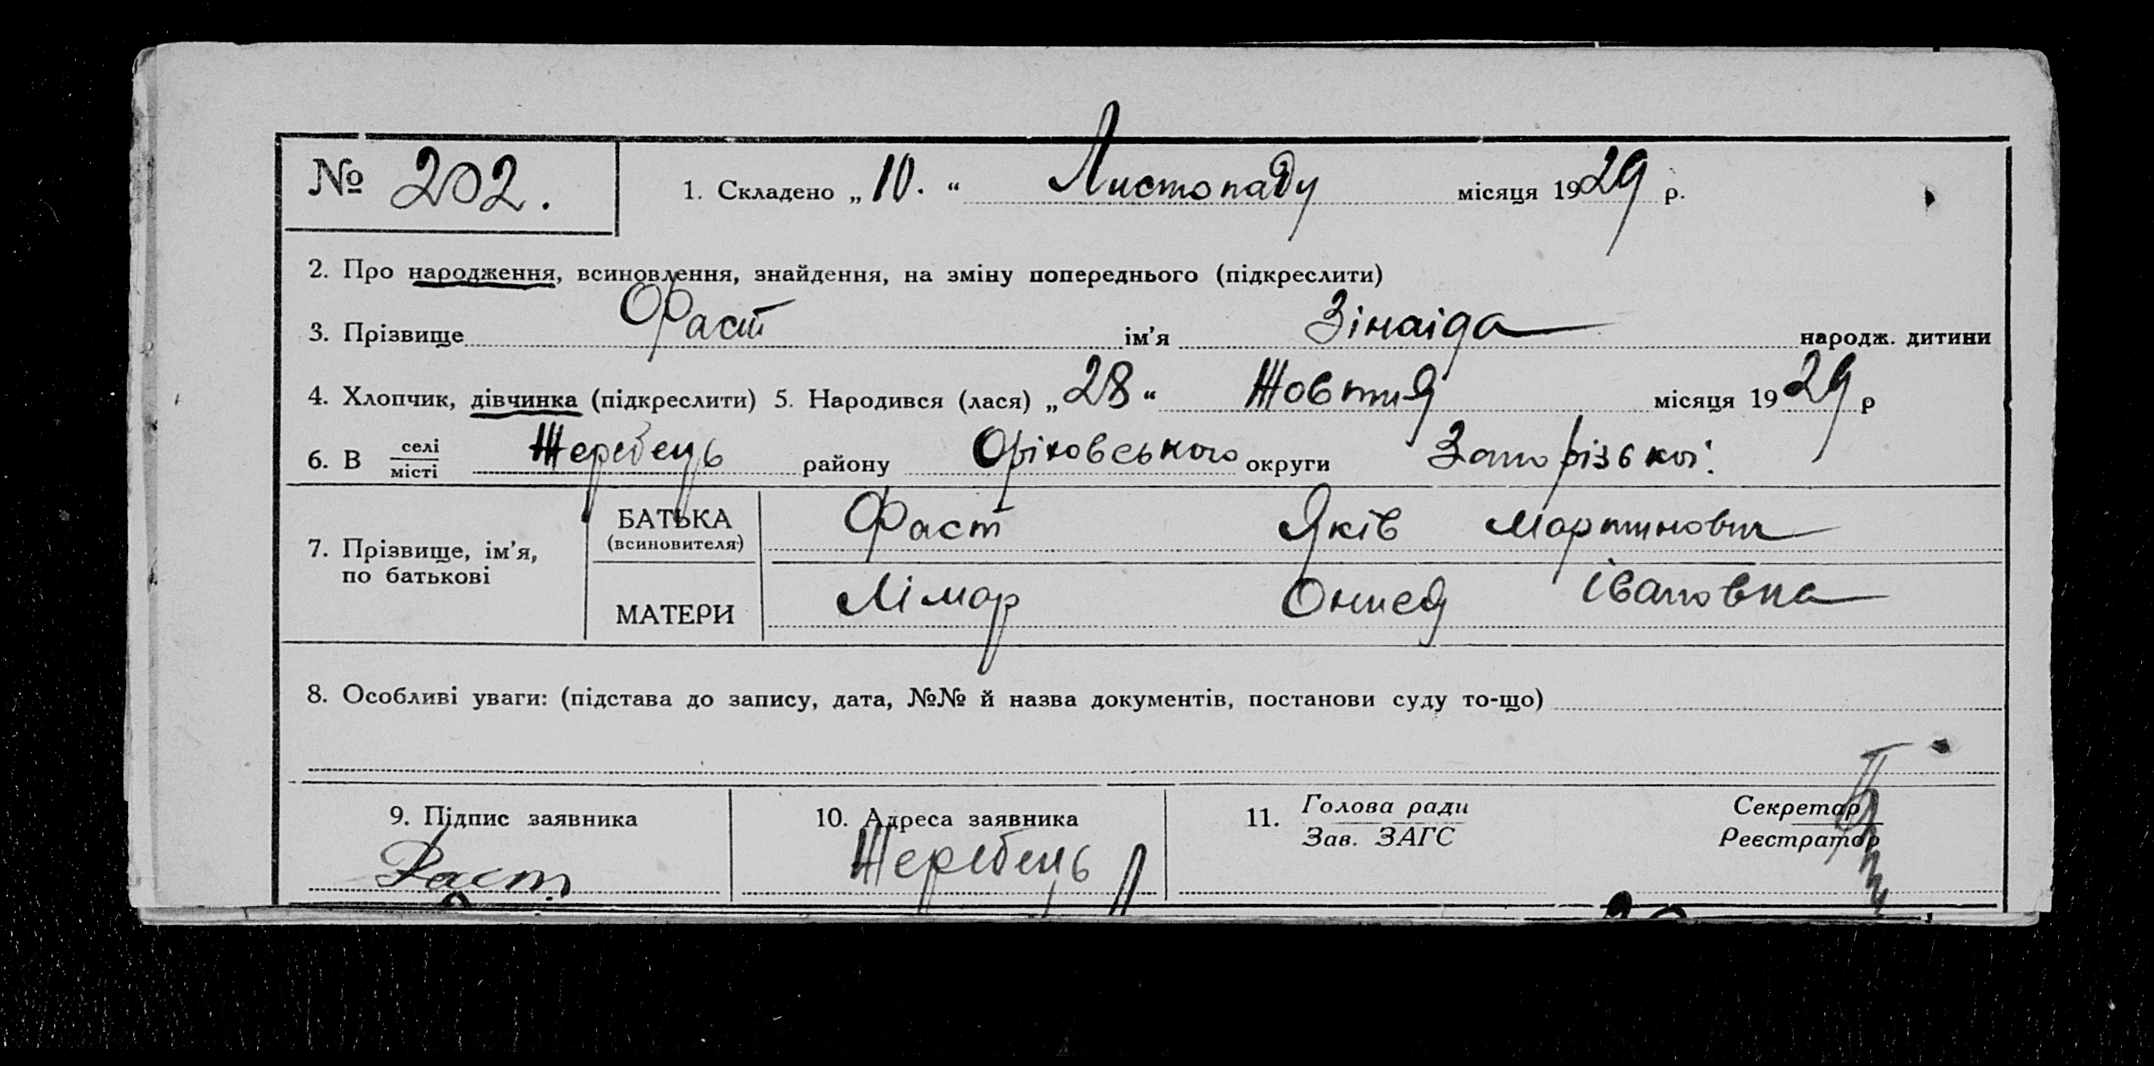 № 202. 1. Складено „10.“ Листопаду місяця 1929 р.
2. Про народження, всиновлення, знайдення, на зміну попереднього (підкреслити)
3. Прізвище Фаст ім'я Зінаіда народж. дитини
4. Хлопчик, дівчинка (підкреслити) 5. Народився (лася) „28“ Жовтня місяця 1929 р
6. В селі Жеребець району Оріховського округи Запорізької.
місті
7. Прізвище, ім'я, по батькові
БАТЬКА (всиновителя) Фаст Яків Мартинович
МАТЕРИ Лімар Онися Івановна
8. Особливі уваги: (підстава до запису, дата, №№ й назва документів, постанови суду то-що)
9. Підпис заявника 10. Адреса заявника 11. Голова ради Секретар
Зав. ЗАГС Реєстратор
Фаст Жеребець